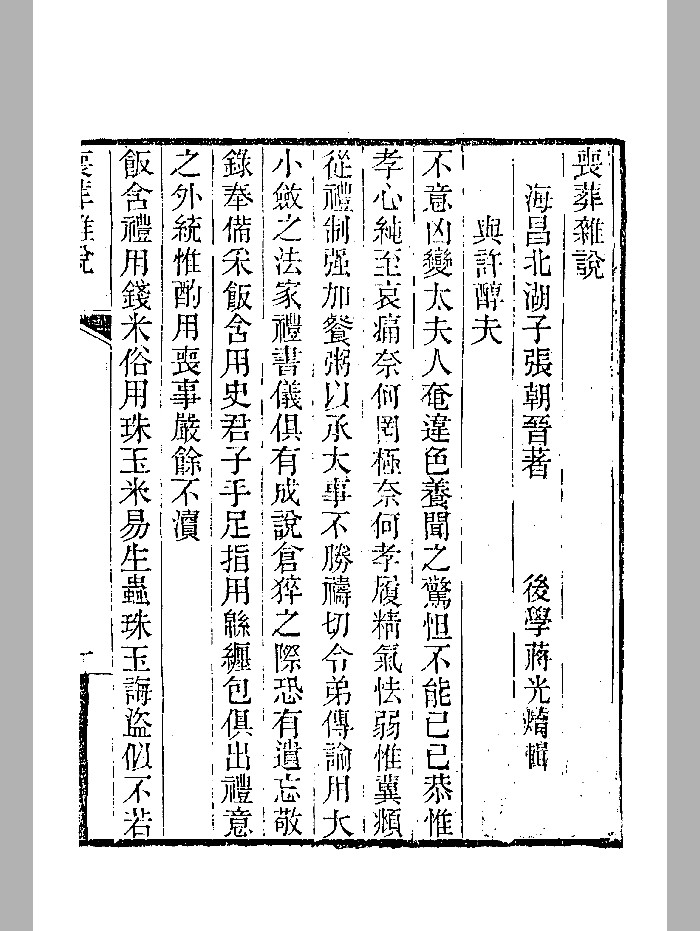 喪葬雜說
海昌北湖子張朝晉著　後學蔣光焴輯
與許醇夫
不意凶變太夫人奄違色養聞之驚怛不能已已恭惟
孝心純至哀痛奈何罔極奈何孝履精氣怯弱惟冀頫
從禮制强加餐粥以承大事不勝禱切令弟傳論用大
小斂之法家禮書儀俱有成說倉猝之際恐有遺忘敬
錄奉備采飯含用史君子手足指用緜纏包俱出禮意
之外統惟酌用喪事嚴餘不瀆
飯含禮用錢米俗用珠玉米易生蟲珠玉誨盜似不若
喪葬雜說
一